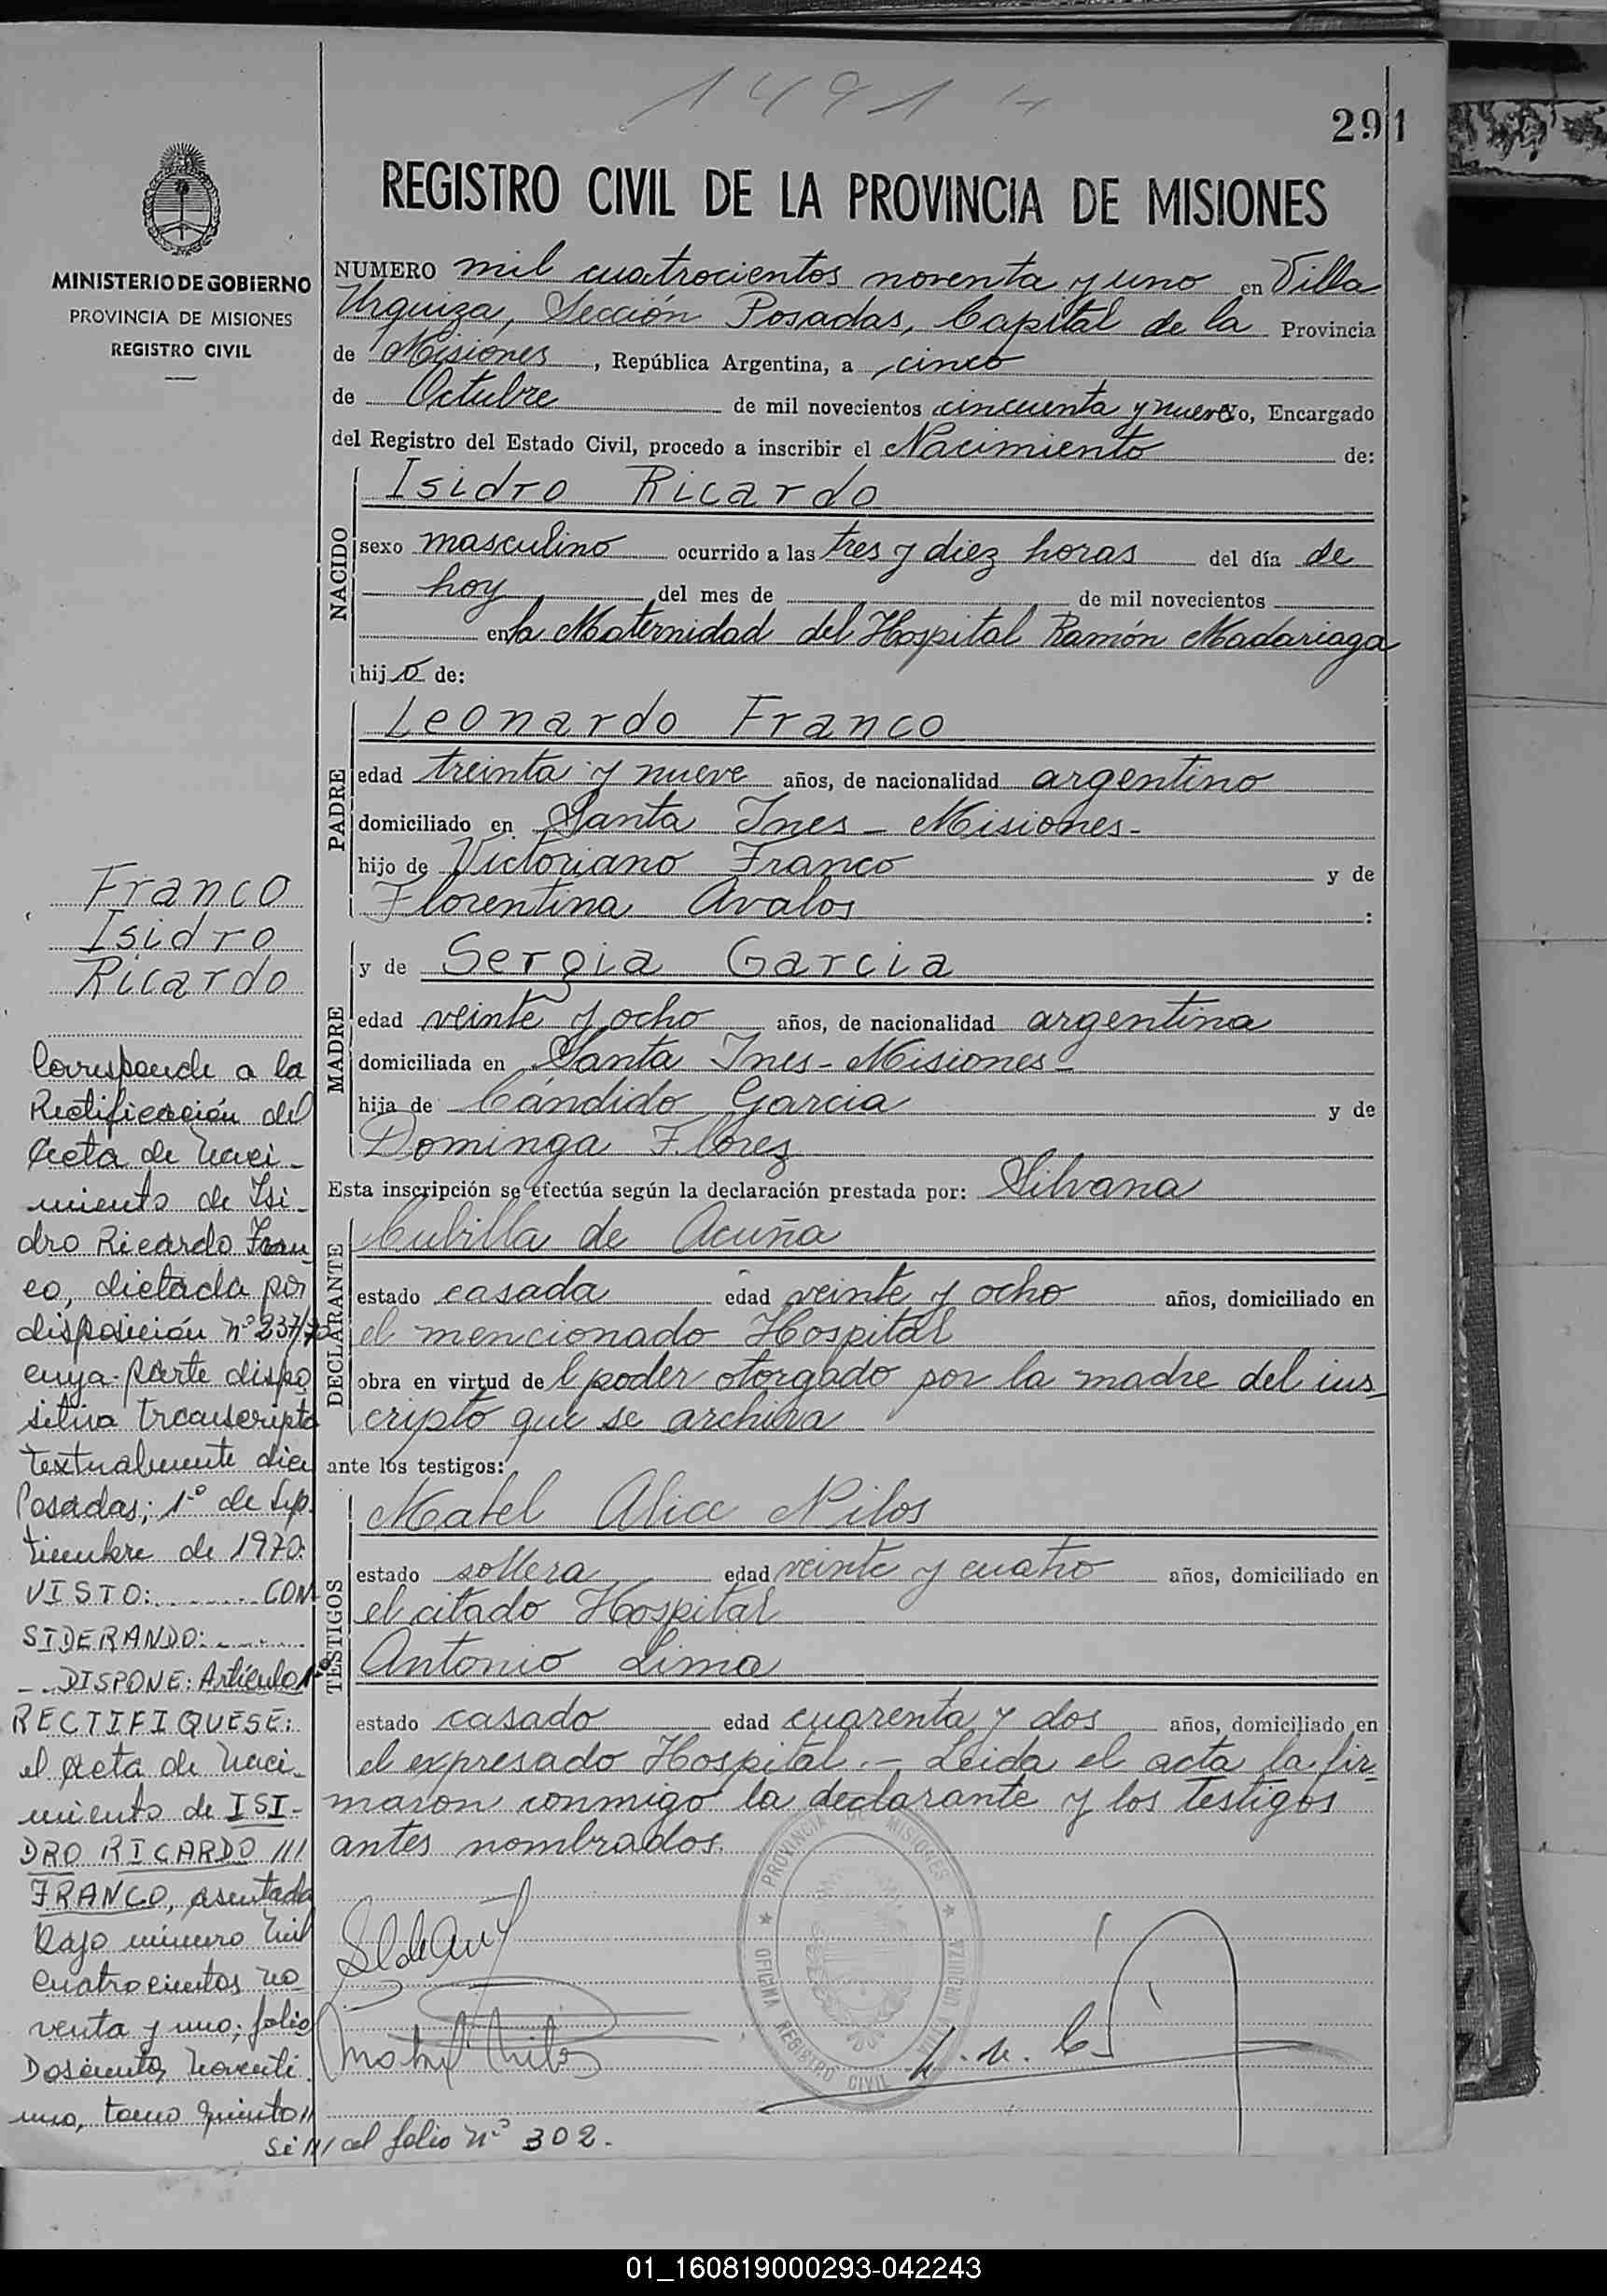 1491
291
REGISTRO CIVIL DE LA PROVINCIA DE MISIONES
MINISTERIO DE GOBIERNO
PROVINCIA DE MISIONES
REGISTRO CIVIL
NUMERO mil cuatrocientos noventa y uno en Villa
Urquiza, Sección Posadas, Capital de la Provincia
de Misiones, República Argentina, a cinco
de Octubre de mil novecientos cincuenta y nueve Yo, Encargado
del Registro del Estado Civil, procedo a inscribir el Nacimiento de:
NACIDO
Isidro Ricardo
sexo masculino ocurrido a las tres y diez horas del día de
hoy del mes de de mil novecientos
en la Maternidad del Hospital Ramón Madariaga
hijo de:
PADRE
Leonardo Franco
edad treinta y nueve años, de nacionalidad argentino
domiciliado en Santa Ines - Misiones -
hijo de Victoriano Franco y de
Florentina Avalos :
MADRE
y de Sergia Garcia
edad veinte y ocho años, de nacionalidad argentina
domiciliada en Santa Ines - Misiones -
hija de Cándido Garcia y de
Dominga Florez
Esta inscripción se efectúa según la declaración prestada por: Silvana
DECLARANTE
Cubilla de Acuña
estado casada edad veinte y ocho años, domiciliado en
el mencionado Hospital
obra en virtud del poder otorgado por la madre del ins-
cripto que se archiva
ante los testigos:
TESTIGOS
Mabel Alice Nilos
estado soltera edad veinte y cuatro años, domiciliado en
el citado Hospital
Antonio Lima
estado casado edad cuarenta y dos años, domiciliado en
el expresado Hospital.- Leida el acta la fir-
maron conmigo la declarante y los testigos
antes nombrados.
PROVINCIA DE MISIONES
OFICINA REGISTRO CIVIL VILLA URQUIZA
Franco
Isidro
Ricardo
Corresponde a la
Rectificación del
Acta de Naci-
miento de Isi-
dro Ricardo Fran-
co, dictada por
disposición nº 237/70
cuya parte dispo
sitiva transcripta
textualmente dice
Posadas; 1º de Sep-
tiembre de 1970.
VISTO: ........ CON
SIDERANDO: ......
.. DISPONE: Artículo 1º
RECTIFIQUESE:
el Acta de Naci-
miento de ISI-
DRO RICARDO ///
FRANCO, asentada
bajo número mil
cuatrocientos no
venta y uno; folio
Doscientos noventi
uno, tomo quinto //
al folio nº 302.
01_160819000293-042243